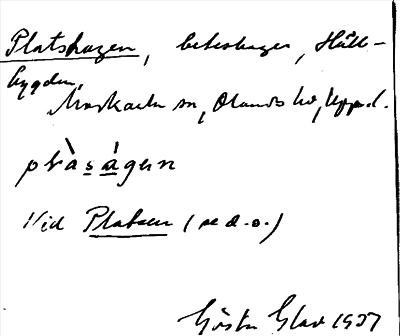 Platshagen, beteshage, Håll-
bygden,
Morkarla sn, Olands hd, Uppl.
plàságen
Vid Platsen (se d.o.)
Gösta Glav 1937